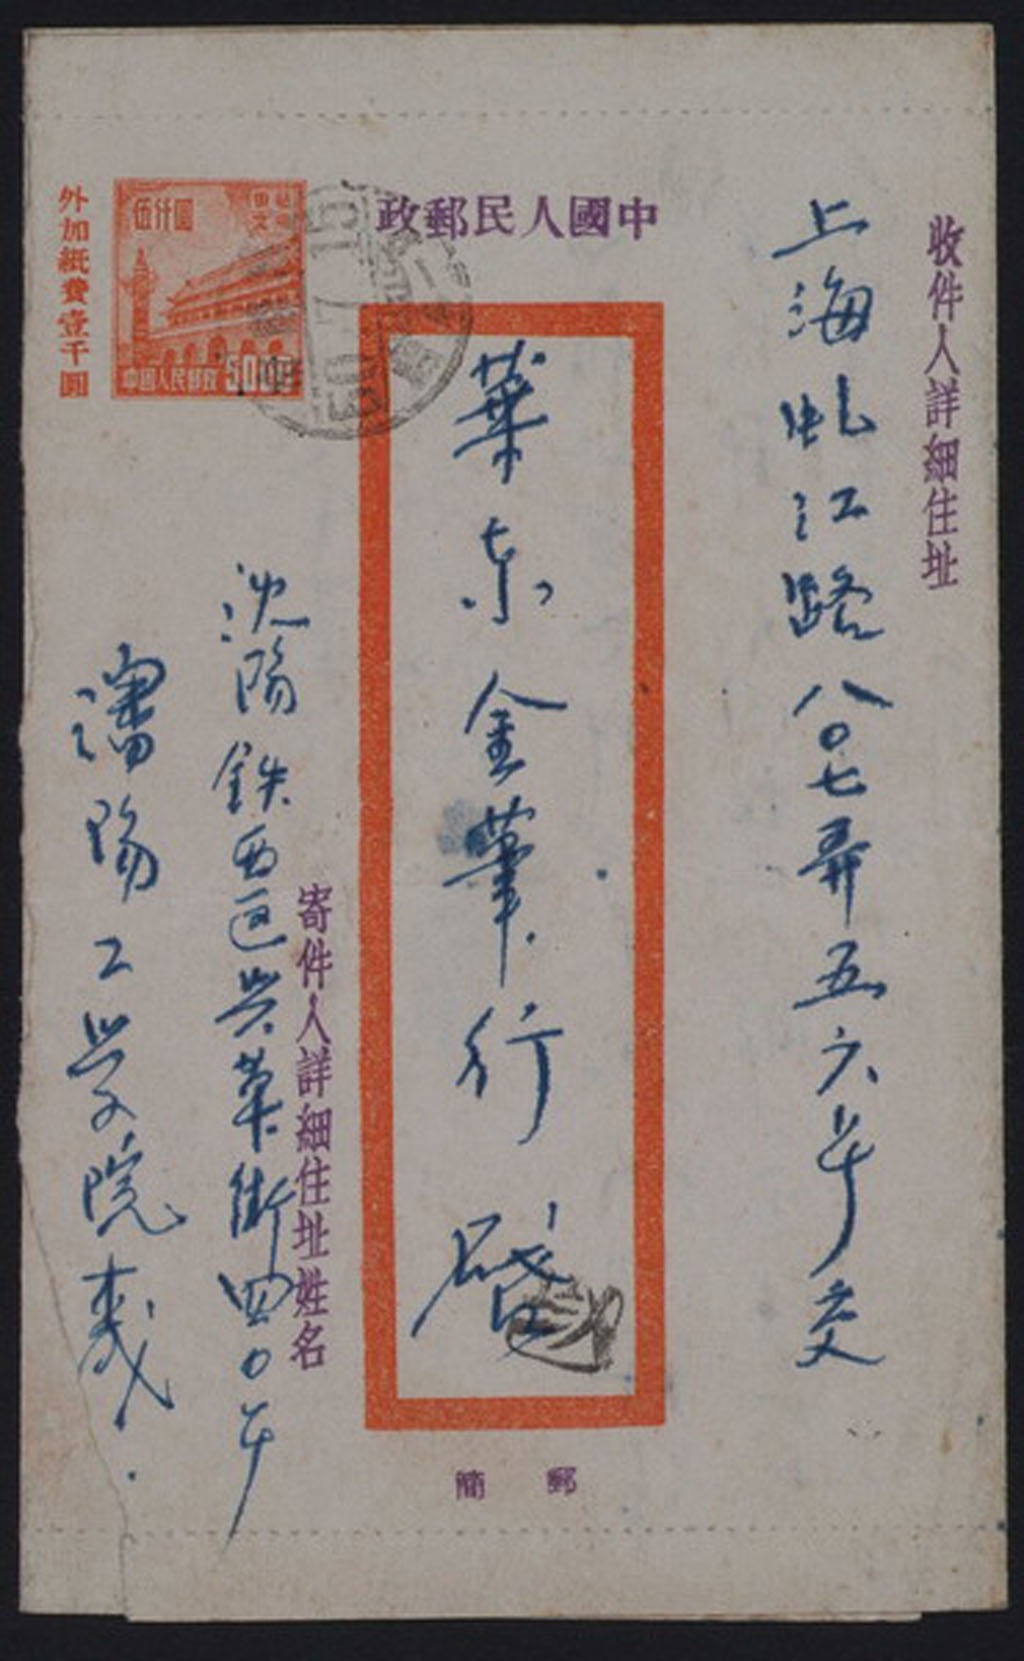 收件人詳細住址
上海虬江路八〇七弄五六号交
中國人民郵政
華东金筆行 啓
郵簡
寄件人詳細住址姓名
沈陽鉄西区兴華街四〇号
瀋陽工学院
伍仟圓
中國人民郵政 5000
外加紙費壹千圓